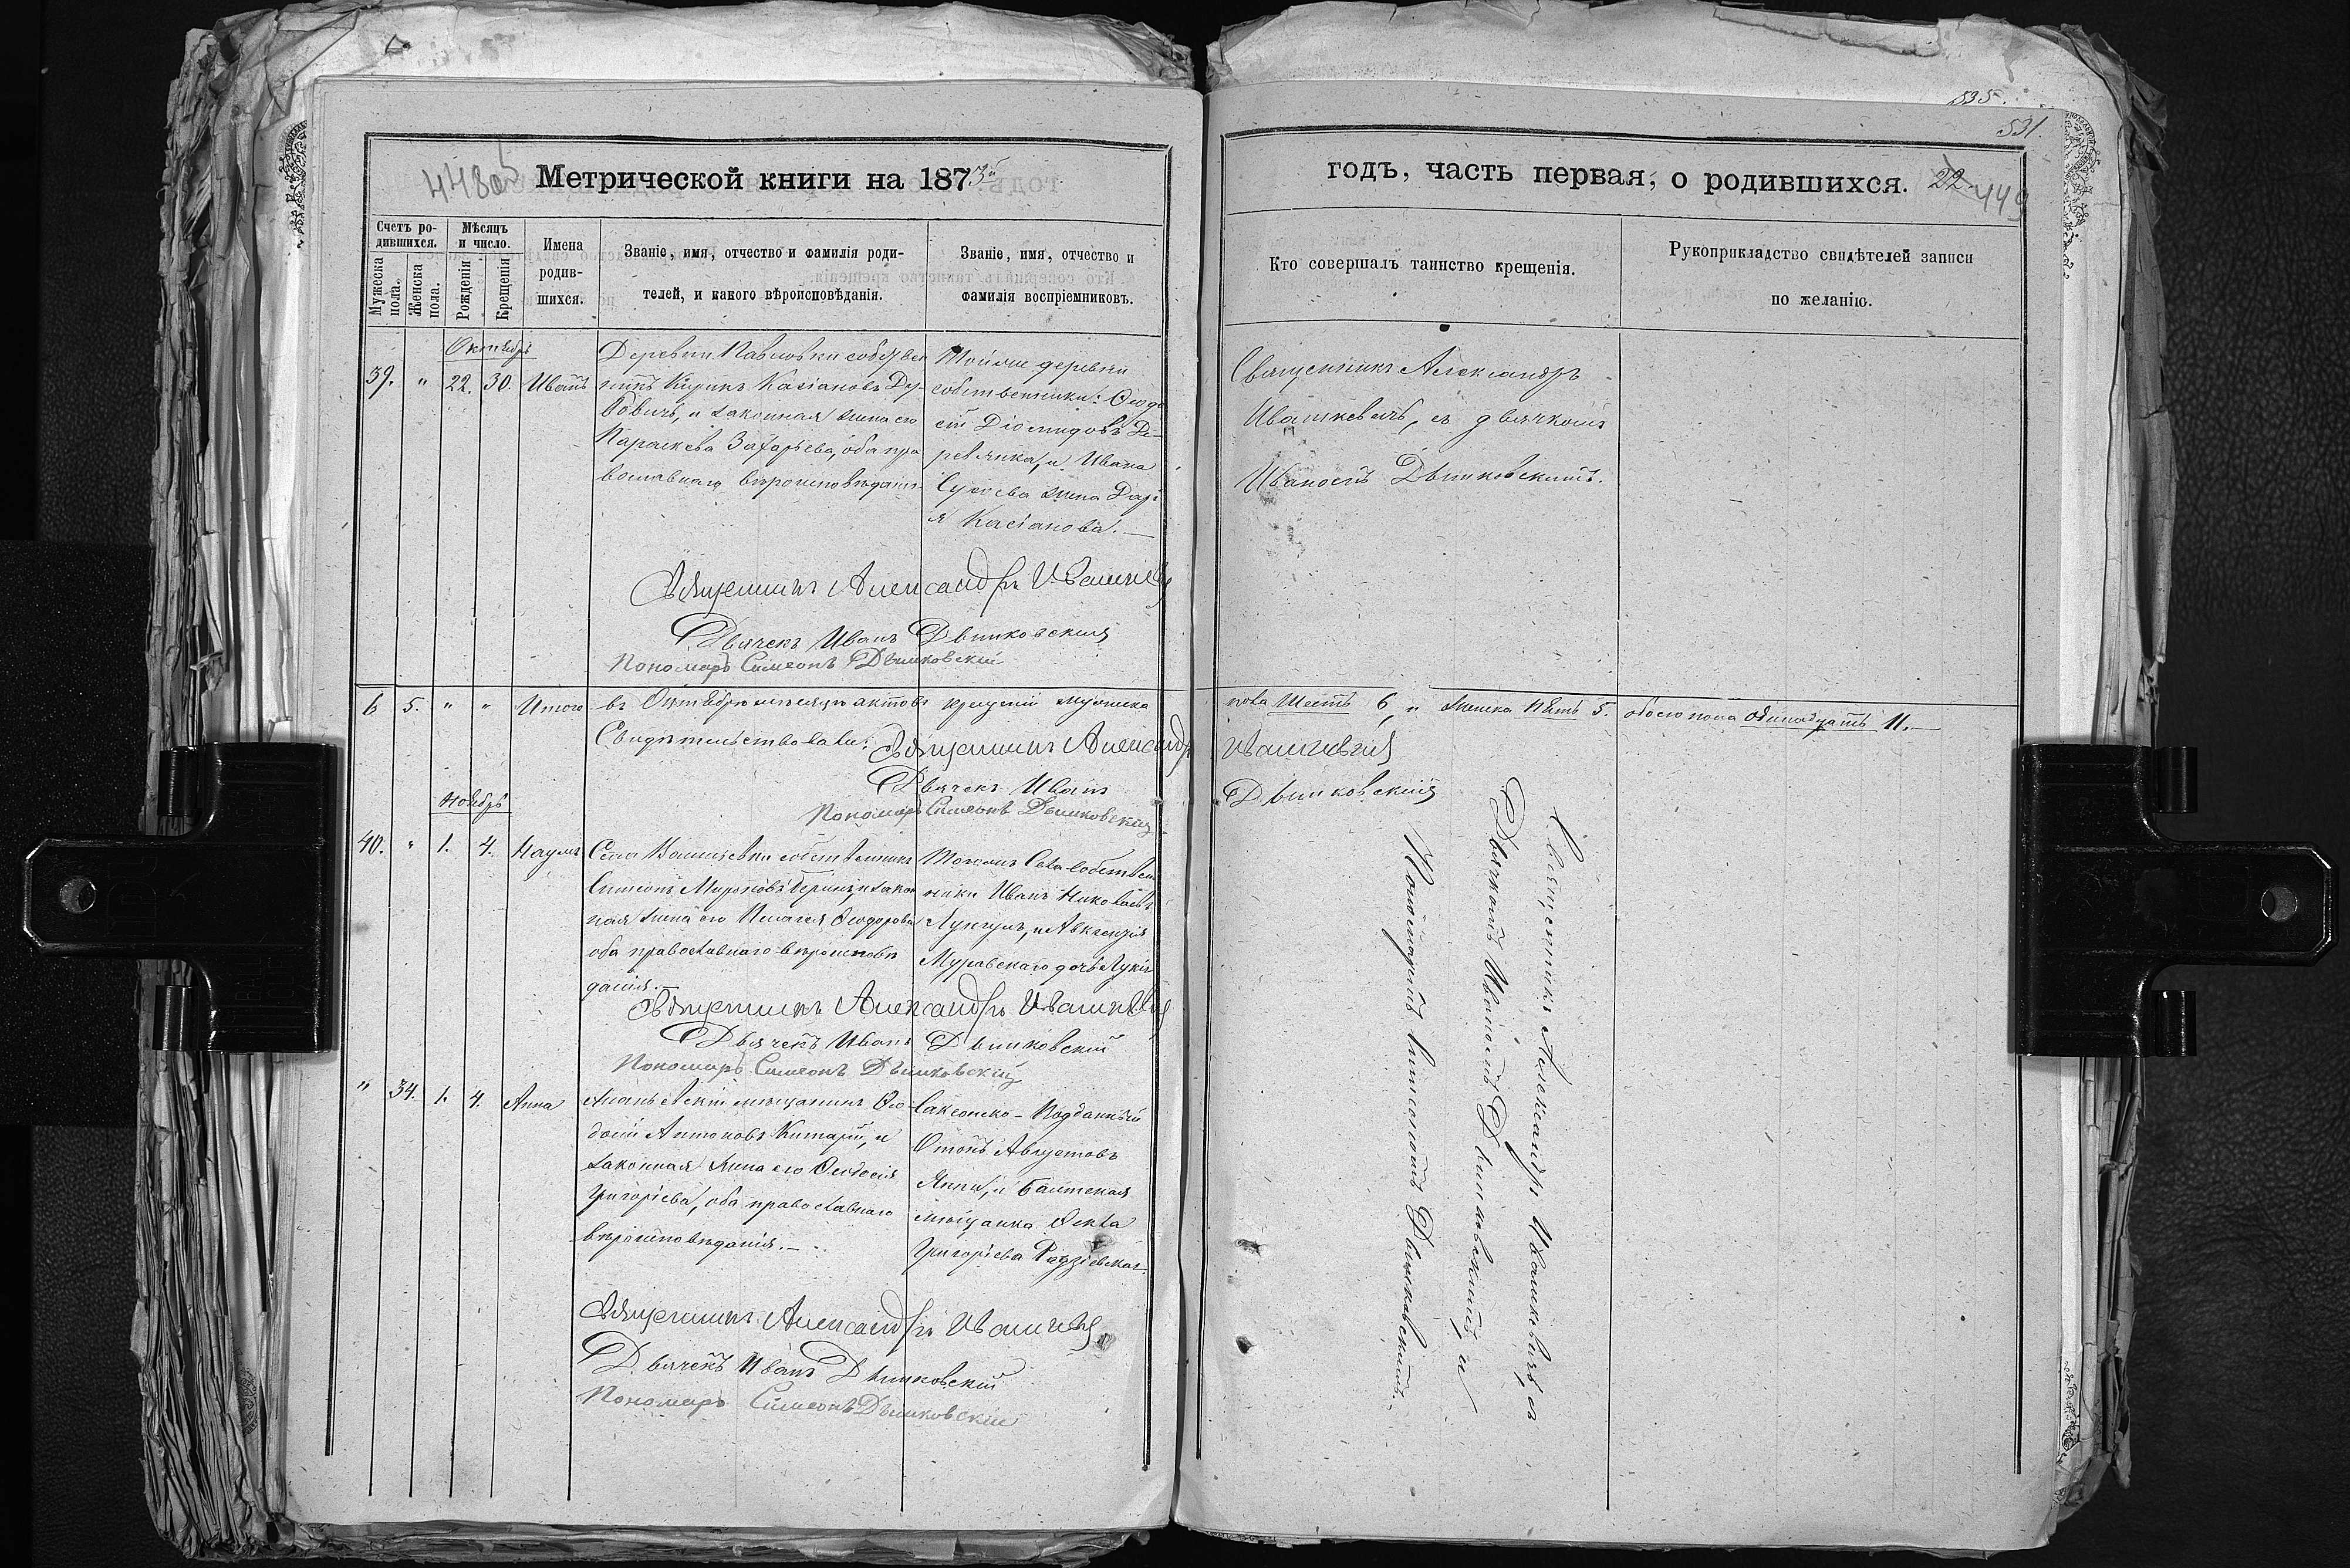 448об
Метрической книги на 1873й
Счетъ ро-
дившихся.
Мужеска
пола.
Женска
пола.
Мѣсяцъ
и число.
Рожденія
Крещенія
Имена
родив-
шихся.
Званіе, имя, отчество и фамилія роди-
телей, и какого вѣроисповѣданія.
Званіе, имя, отчество и
фамилія воспріемниковъ.
Октябрь
39. " 22. 30. Иванъ
Деревни Павловки собствен
никъ Кирикъ Касіановъ Дер
бовичъ, и законная жена его
Параскева Захарьева, оба пра
вославнаго вѣроисповѣданія
Тойже деревни
собственники: Ѳеодо
сій Діомидовъ Де-
ревянка, и Ивана
жена Дарі
я Касіанова. —
Священникъ Александръ Ивашкевичъ
Дьячекъ Иванъ Дьяковскій
Пономарь Симеонъ Дьяковскій
6 5. " " Итого въ Октябрѣ мѣсяцѣ актовъ крещеній мужеска
Свидѣтельствовали: Священникъ Александръ
Дьячекъ Иванъ
Пономарь Симеонъ Дьяковскій
Ноябрь
40. " 1. 4. Наумъ
Села собственникъ
Симеонъ Мироновъ и закон
ная жена его Пелагея Ѳеодорова
оба православнаго вѣроисповѣ
данія.—
Тогоже Села собствен
ники Иванъ Николаевъ
и Авксендія
Муравскаго дочь Лукія
Священникъ Александръ Ивашкевичъ
Дьячекъ Иванъ Дьяковскій
Пономарь Симеонъ Дьяковскій
" 34. 1. 4. Анна
Ананьевскій мѣщанинъ Ѳео-
досій Антоновъ Китарій, и
законная жена его Ѳеодосія
Григоріева, оба православнаго
вѣроисповѣданія. —
Саксонско-Подданный
Отонъ Августовъ
и Балтская
мѣщанка Ѳекла
Григоріева Радзіевская.
Священникъ Александръ Ивашкевичъ
Дьячекъ Иванъ Дьяковскій
Пономарь Симеонъ Дьяковскій
535.
531
годъ, часть первая, о родившихся. 22. 449
Кто совершалъ таинство крещенія.
Рукоприкладство свидѣтелей записи
по желанію.
Священникъ Александръ
Ивашкевичъ, съ дьячкомъ
Иваномъ Дьяковскимъ.
пола Шесть 6, и женска Пять 5. обоего пола одинадцать 11. —
Ивашкевичъ
Дьяковскій
Священникъ Александръ Ивашкевичъ, съ
Дьячкомъ Иваномъ Дьяковскимъ, и
Пономаремъ Симеономъ Дьяковскимъ.